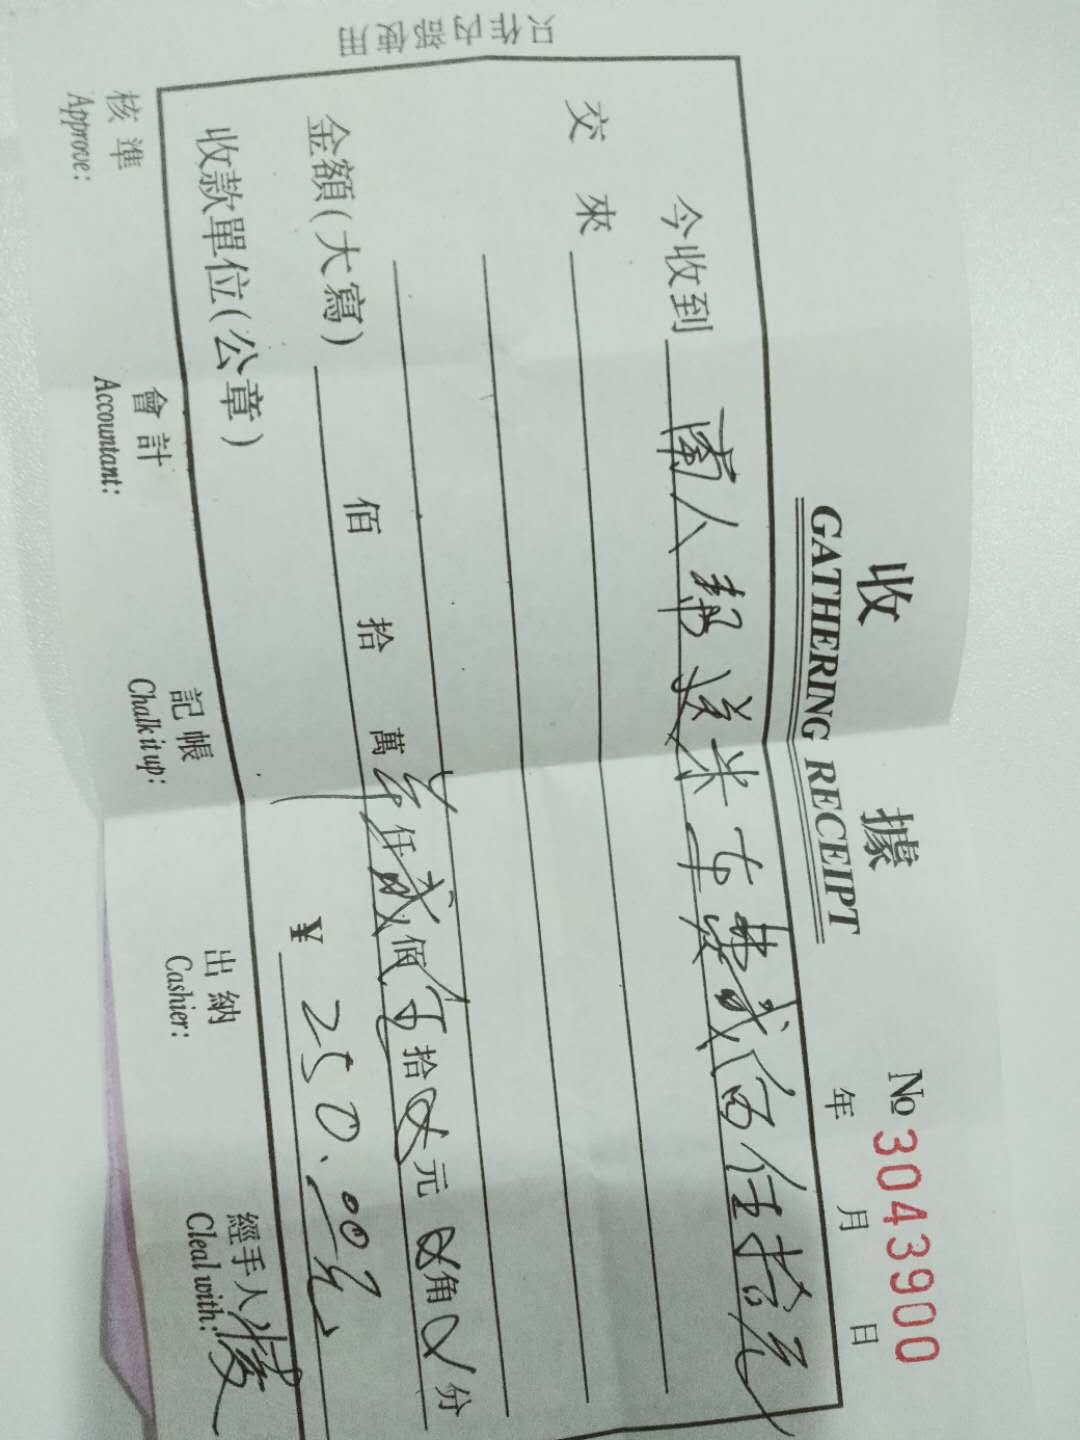 收 據
GATHERING RECEIPT
№ 3043900
年 月 日
今收到 南人帮送米车费贰佰伍拾元
交 來
金額(大寫) 佰 拾 萬 仟贰佰 拾 元 角 分
收款單位(公章) ¥ 250.00元
核準 會計 記帳 出納 經手人
Approve: Accountant: Chalk it up: Cashier: Cleal with:
只作内部使用